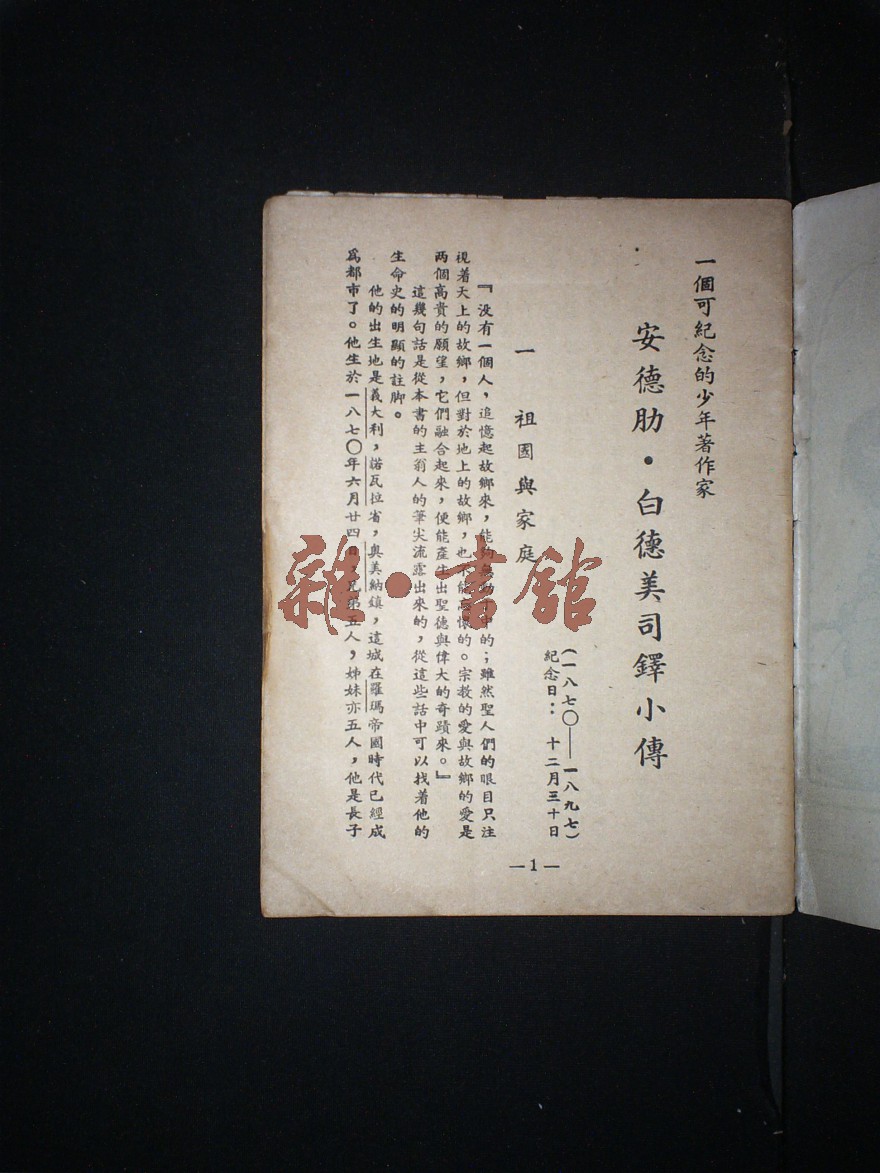 一個可紀念的少年著作家
安德肋·白德美司鐸小傳
(一八七〇——一八九七)
紀念日：十二月三十日
一 祖國與家庭
『没有一個人，追憶起故鄉來，能夠無動於中的；雖然聖人們的眼目只注
視着天上的故鄉，但對於地上的故鄉，也不能忘懷的。宗教的愛與故鄉的愛是
两個高貴的願望，它們融合起來，便能產生出聖德與偉大的奇蹟來。』
這幾句話是從本書的主翁人的筆尖流露出來的，從這些話中可以找着他的
生命史的明顯的註脚。
他的出生地是義大利，諾瓦拉省，奥美納鎮，這城在羅瑪帝國時代已經成
爲都市了。他生於一八七〇年六月廿四日，兄弟五人，姊妹亦五人，他是長子
—1—
雜·書館